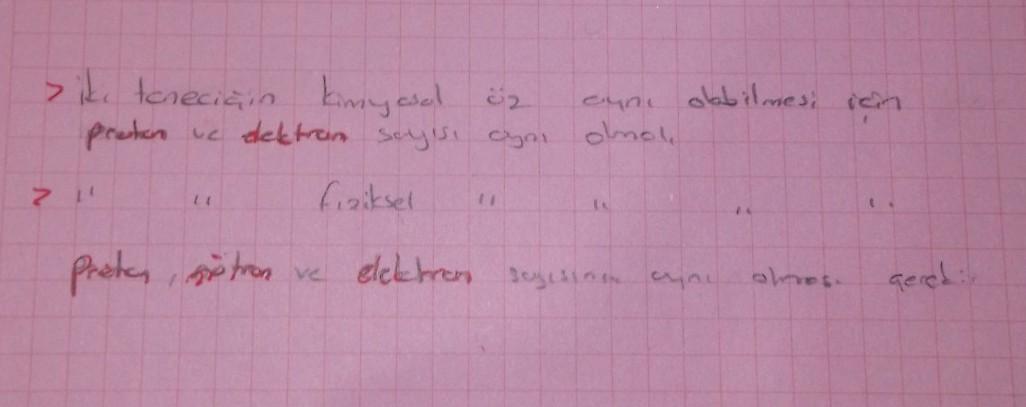 > iki taneciğin kimyasal öz aynı olabilmesi için
proton ve elektron sayısı aynı olmalı
> " " fiziksel " " " "
Proton, nötron ve elektron sayısının aynı olması gerekir